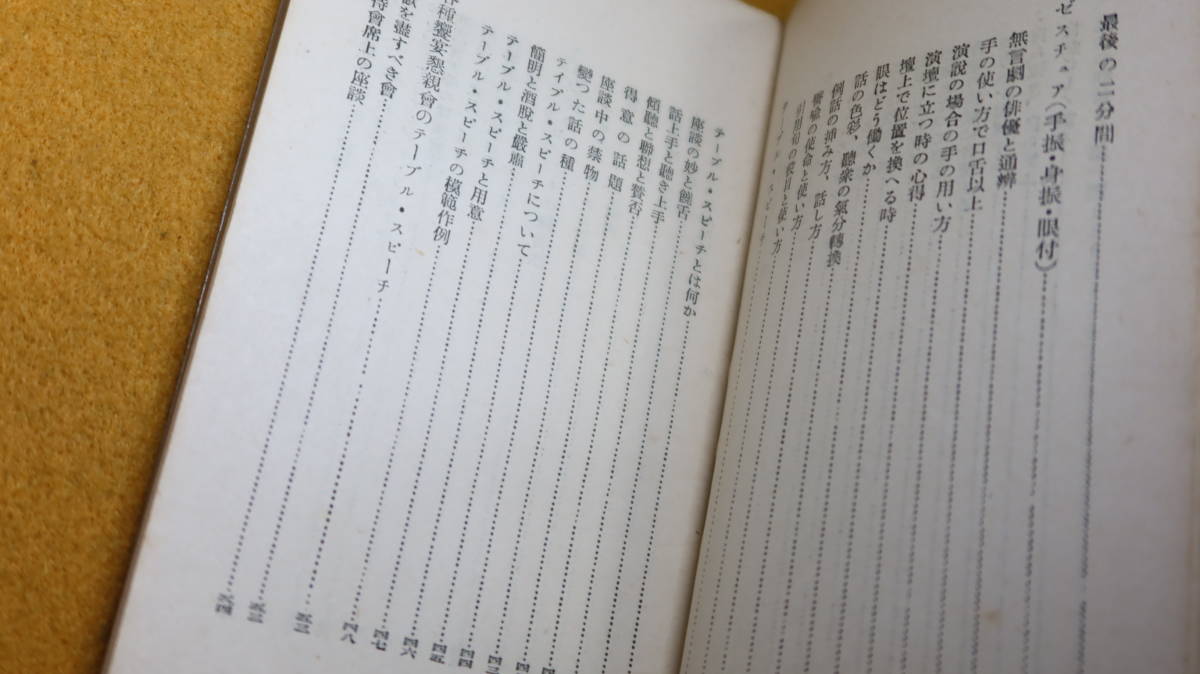 最後の二分間
ゼスチュア(手振・身振・眼付)
無言劇の俳優と通辯
手の使い方で口舌以上
演説の場合の手の用い方
演壇に立つ時の心得
壇上で位置を換へる時
眼はどう働くか
話の色彩、聽衆の氣分轉換
例話の挿み方、話し方
譬喩の使命と使い方
引用句の役目と使い方
テーブル・スピーチとは何か
座談の妙と饒舌
話上手と聽き上手
傾聽と聯想と賛否
得意の話題
座談中の禁物
變つた話の種
テイブル・スピーチについて
簡明と酒脫と嚴肅
テーブル・スピーチと用意 四四
テーブル・スピーチの模範作例 四五
種饗宴懇親會のテーブル・スピーチ
を盡すべき會
待會席上の座談
四六
四七
四八